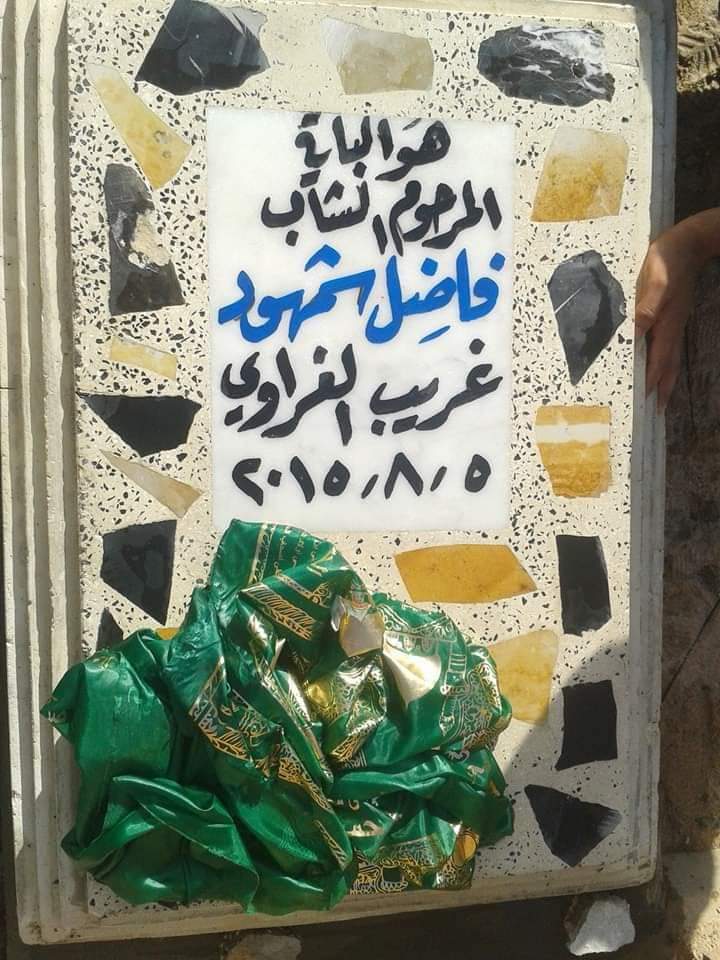 هو الباقي
المرحوم الشاب
فاضل شمهود
غريب الغراوي
٢٠١٥/٨/٥